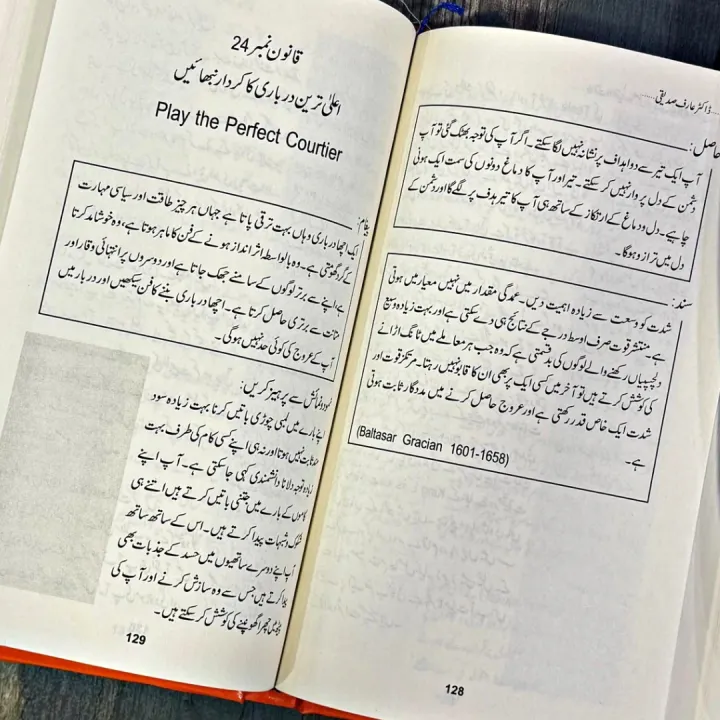 ڈاکٹر عارف صدیقی........
حاصل:
آپ ایک تیر سے دو اہداف پر نشانہ نہیں لگا سکتے۔ اگر آپ کی توجہ بھٹک گئی تو آپ
دشمن کے دل پر وار نہیں کر سکتے۔ تیر اور آپ کا دماغ دونوں کی سمت ایک ہونی
چاہیے۔ دل و دماغ کے ارتکاز کے ساتھ ہی آپ کا تیر ہدف پر لگے گا اور دشمن کے
دل میں ترازو ہو گا۔
سند:
شدت کو وسعت سے زیادہ اہمیت دیں۔ عمدگی مقدار میں نہیں معیار میں ہوتی
ہے۔ منتشر قوت صرف اوسط درجے کے نتائج ہی دے سکتی ہے اور بہت زیادہ وسیع
دلچسپیاں رکھنے والے لوگوں کی بدقسمتی ہے کہ وہ جب ہر معاملے میں ٹانگ اڑانے
کی کوشش کرتے ہیں تو آخر میں کسی ایک پر بھی ان کا قابو نہیں رہتا۔ مرتکز قوت اور
شدت ایک خاص قدر رکھتی ہے اور عروج حاصل کرنے میں مددگار ثابت ہوتی
ہے۔
(Baltasar Gracian 1601-1658)
128
قانون نمبر 24
اعلیٰ ترین درباری کا کردار نبھائیں
Play the Perfect Courtier
پیغام:
ایک اچھا درباری وہاں بہت ترقی پاتا ہے جہاں ہر چیز طاقت اور سیاسی مہارت
کے گرد گھومتی ہے۔ وہ بالواسطہ اثر انداز ہونے کے فن کا ماہر ہوتا ہے، وہ خوشامد کرتا
ہے، اپنے سے برتر لوگوں کے سامنے جھک جاتا ہے اور دوسروں پر انتہائی وقار اور
متانت سے برتری حاصل کرتا ہے۔ اچھا درباری بننے کا فن سیکھیں اور دربار میں
آپ کے عروج کی کوئی حد نہیں ہوگی۔
نمود و نمائش سے پرہیز کریں:
اپنے بارے میں لمبی چوڑی باتیں کرنا بہت زیادہ سود
مند ثابت نہیں ہوتا اور نہ ہی اپنے کسی کام کی طرف بہت
زیادہ توجہ دلانا دانشمندی کہی جا سکتی ہے۔ آپ اپنے
کاموں کے بارے میں جتنی باتیں کرتے ہیں اتنے ہی
شکوک و شبہات پیدا کرتے ہیں۔ اس کے ساتھ ساتھ
آپ اپنے دوسرے ساتھیوں میں حسد کے جذبات بھی
پیدا کرتے ہیں جس سے وہ سازش کرنے اور آپ کی
پیٹھ میں چھرا گھونپنے کی کوشش کر سکتے ہیں۔
129